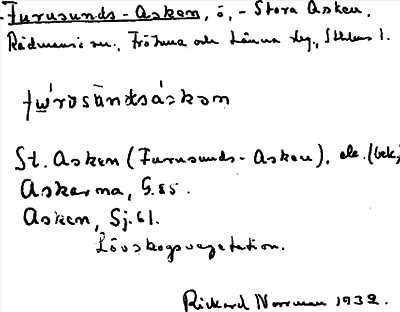 Furusunds-Asken, ö, - Stora Asken.
Rådmansö sn., Frötuna och Länna slg., Sthlms l.
St. Asken (Furusunds-Asken), ek. (bek)
Askarna, G. 85.
Asken, Sj. 61.
Lövskogsvegetation.
Rickard Norrman 1932.